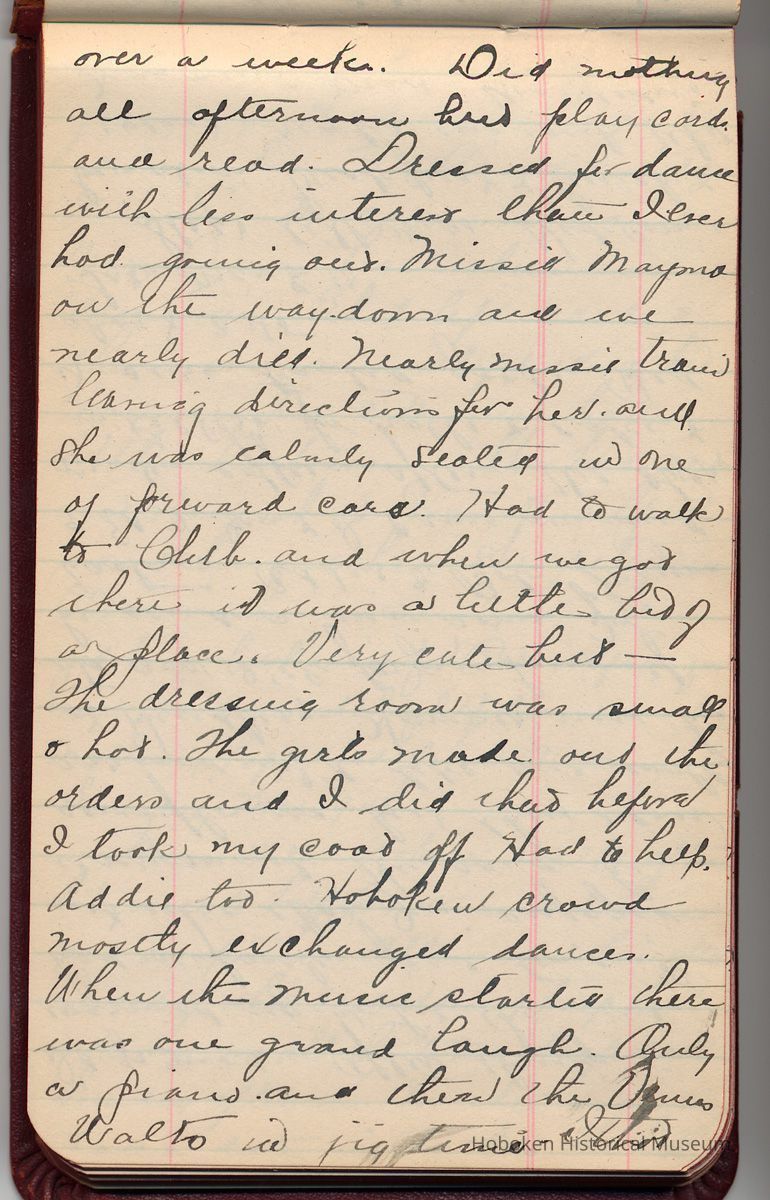 over a week. Did nothing
all afternoon but play cards
and read. Dressed for dance
with less interest than I ever
had going out. Missed Mayme
on the way down and we
nearly died. Nearly missed train
leaving directions for her and
she was calmly seated in one
of forward cars. Had to walk
to Club. and when we got
there it was a little bit of
a place. Very cute but —
The dressing room was small
& hot. The girls made out the
orders and I did that before
I took my coat off Had to help.
Addie too. Hoboken crowd
mostly exchanged dances.
When the music started there
was one grand laugh. Only
a piano. and then the
Waltz in jig time
Hoboken Historical Museum